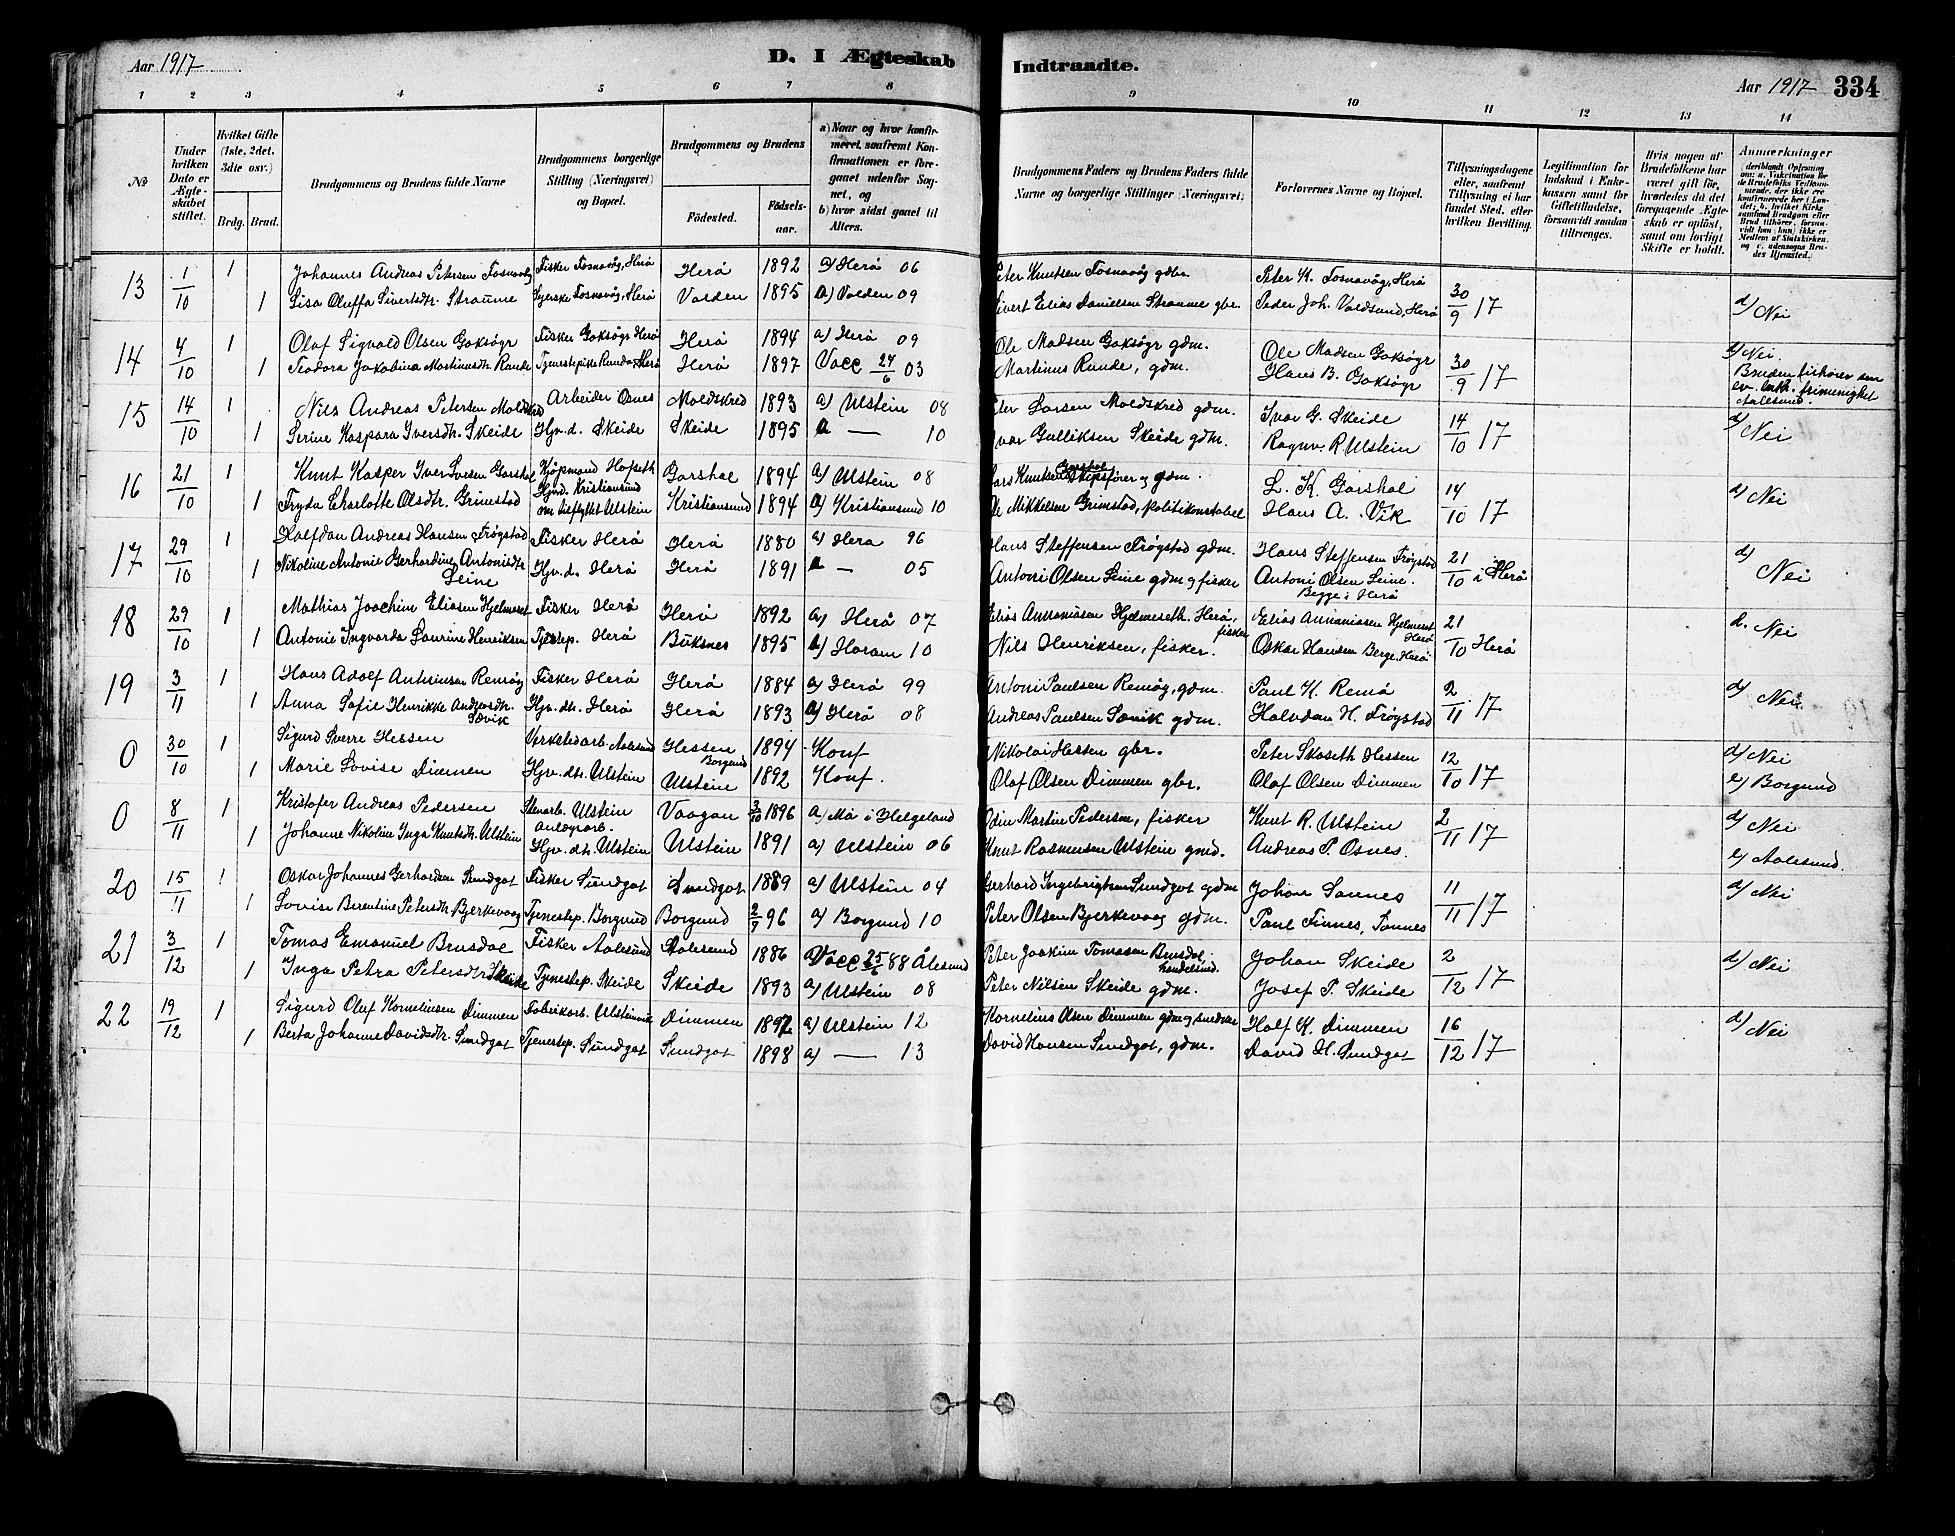 Aar 1917 D. I Ægteskab Indtraadte. Aar 1917 334
1 2 3 4 5 6 7 8 9 10 11 12 13 14
No
Under hvilken Dato er Ægteskabet stiftet.
Hvilket Gifte (1ste, 2det, 3die osv.)
Brdg. Brud.
Brudgommens og Brudens fulde Navne
Brudgommens borgerlige Stilling (Næringsvei) og Bopæl.
Brudgommens og Brudens
Fødested. Fødselsaar.
a) Naar og hvor konfirmeret, saafremt Konfirmationen er foregaaet udenfor Sognet, og
b) hvor sidst gaaet til Alters.
Brudgommens Faders og Brudens Faders fulde Navne og borgerlige Stillinger (Næringsvei).
Forlovernes Navne og Bopæl.
Tillysningsdagene eller, saafremt Tillysning ei har fundet Sted, efter hvilken Bevilling.
Legitimation for Indskud i Enkekassen samt for Giftetilladelse, forsaavidt saadan tiltrænges.
Hvis nogen af Brudefolkene har været gift før, hvorledes da det foregaaende Ægteskab er opløst, samt om lovligt Skifte er holdt.
Anmærkninger
13 1/10 1 Johannes Andreas Petersen Fosnavåg Fisker Fosnavåg, Herø Herø 1892 a) Herø 06 Peter Knutsen Fosnavåg gbr. Peter K. Fosnavåg, Herø
1 Lisa Oluffa Sivertsdtr. Straume Syerske Fosnavåg, Herø Volden 1895 a) Volden 09 Sivert Elias Danielsen Straume gbr. Peder Joh. Voldsund, Herø 30/9 17 d) Nei
14 4/10 1 Olaf Sigvald Olsen Goksøyr Fisker Goksøyr Herø Herø 1894 a) Herø 09 Ole Madsen Goksøyr gdm. Ole Madsen Goksøyr d) Nei.
1 Teodora Jakobina Martinusdtr. Runde Tjenestepike Runde, Herø Herø 1897 Vacc 24/6 03 Martinus Runde, gdm. Hans B. Goksøyr 30/9 17 Bruden tilhører den ev. luth. frimenighet Aalesund.
15 14/10 1 Nils Andreas Petersen Moldskred Arbeider Osnes Moldskred 1893 a) Ulstein 08 Peter Larsen Moldskred gdm. Ivar G. Skeide 14/10 17 d) Nei
1 Serine Kaspara Iversdtr. Skeide Hjv. d. Skeide Skeide 1895 a — 10 Ivar Gulliksen Skeide gdm. Ragnv. R. Ulstein
16 21/10 1 Knut Kasper Iver Larsen Garshol Kjøpmand Hofseth Garshol 1894 a) Ulstein 08 Lars Knutsen Garshol Skipsfører og gdm. L. K. Garshol 14/10 17 d) Nei
1 Fryda Charlotte Olsdtr. Grimstad Hjvd. Kristiansund nu tilflyttet Ulstein Kristiansund 1894 a) Kristiansund 10 Ole Mikkelsen Grimstad, politikonstabel Hans A. Vik
17 29/10 1 Halfdan Andreas Hansen Frøystad Fisker Herø Herø 1880 a) Herø 96 Hans Steffensen Frøystad gdm. Hans Steffensen Frøystad 21/10 i Herø d) Nei
1 Nikoline Antonie Gerhardine Antonisdtr Leine Hjv. d. Herø Herø 1891 a — 05 Antoni Olsen Leine gdm og fisker Antoni Olsen Leine. Begge i Herø
18 29/10 1 Mathias Joachim Eliasen Hjelmeset Fisker Herø Herø 1892 a) Herø 07 Elias Annaniasen Hjelmeseth Herø, fisker Elias Annaniasen Hjelmeset Herø 21/10 Herø d. Nei
1 Antonie Ingvarda Laurine Henriksen Tjenestep. Herø Buksnes 1895 a) Haram 10 Nils Henriksen, fisker. Oskar Hansen Berge, Herø
19 3/11 1 Hans Adolf Antonisen Remøy Fisker Herø Herø 1884 a) Herø 99 Antoni Paulsen Remøy, gdm. Paul K. Remø 2/11 17 d) Nei
1 Anna Sofie Henrikke Andreasdtr. Sævik Hjv. dtr. Herø Herø 1893 a) Herø 08 Andreas Paulsen Sævik gdm. Halvdan H. Frøystad
0 30/10 1 Sigurd Sverre Hessen Verkstedarb. Aalesund Hessen Borgund 1894 Konf Nikolai Hessen gbr. Peter Skaseth Hessen 12/10 17 d) Nei
1 Marie Lovise Dimmen Hjv. dtr. Ulstein Ulstein 1892 Konf. Olaf Olsen Dimmen gbr. Olaf Olsen Dimmen e) Borgund
0 8/11 1 Kristofer Andreas Pedersen Stenarb. Ulstein anlægsarb. Vaagan 3/10 1896 a) Mo i Helgeland Odin Martin Pedersen, fisker Knut R. Ulstein 2/11 17 d) Nei
1 Johanne Nikoline Inga Knutsdtr. Ulstein Hjv. dtr. Ulstein Ulstein 1891 a) Ulstein 06 Knut Rasmussen Ulstein gmd. Andreas P. Osnes. e) Aalesund.
20 15/11 1 Oskar Johannes Gerhardsen Sundgot Fisker Sundgot Sundgot 1889 a) Ulstein 04 Gerhard Ingebrigtsen Sundgot gdm Johan Sannes 11/11 17 d) Nei
1 Lovise Berentine Petersdtr Bjerkevaag Tjenestep. Borgund Borgund 2/7 96 a) Borgund 10 Peter Olsen Bjerkevaag gdm. Paul Finnes, Sannes
21 3/12 1 Tomas Emanuel Brusdal Fisker Aalesund Aalesund 1886 Vacc 25/6 88 Ålesund Peter Joakim Tomasen Brusdal, handelsmd. Johan Skeide 2/12 17 d) Nei
1 Inga Petra Petersdtr Skeide Tjenestep. Skeide Skeide 1893 a) Ulstein 08 Peter Nilsen Skeide gdm. Josef P. Skeide
22 19/12 1 Sigurd Oluf Kornelinsen Dimmen Fabrikarb. Ulsteinvik Dimmen 1897 a) Ulstein 12 Kornelius Olsen Dimmen gdm og snedker Half K. Dimmen 16/12 17 d) Nei
1 Berta Johanne Davidsdtr. Sundgot Tjenestep. Sundgot Sundgot 1898 a) — 13 David Hansen Sundgot, gdm. David H. Sundgot